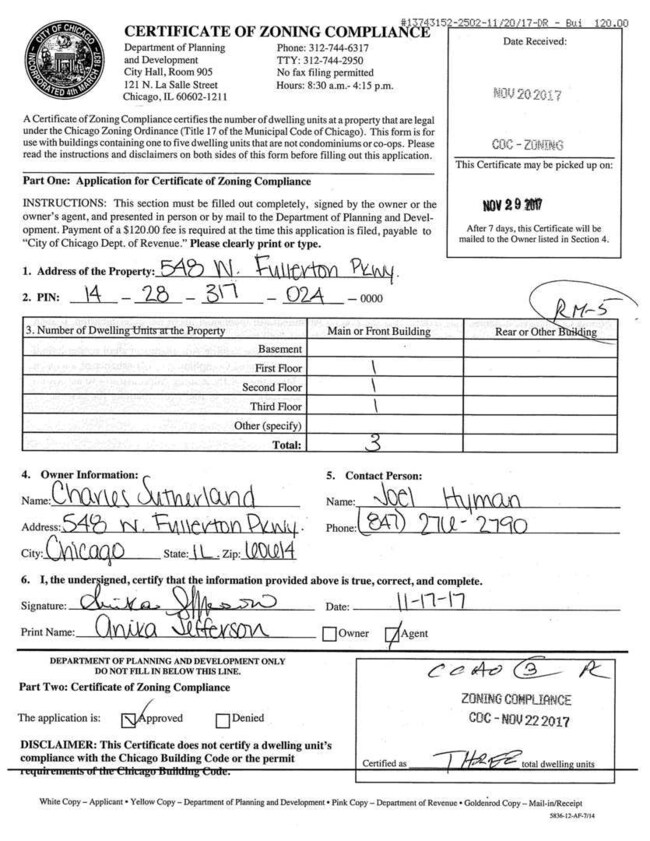 #13743152-2502-11/20/17-DR - Bui 120.00
CITY OF CHICAGO
INCORPORATED 4th MARCH 1837
CERTIFICATE OF ZONING COMPLIANCE
Department of Planning
and Development
City Hall, Room 905
121 N. La Salle Street
Chicago, IL 60602-1211
Phone: 312-744-6317
TTY: 312-744-2950
No fax filing permitted
Hours: 8:30 a.m.- 4:15 p.m.
Date Received:
NOV 20 2017
COC - ZONING
This Certificate may be picked up on:
NOV 29 2017
After 7 days, this Certificate will be
mailed to the Owner listed in Section 4.
A Certificate of Zoning Compliance certifies the number of dwelling units at a property that are legal
under the Chicago Zoning Ordinance (Title 17 of the Municipal Code of Chicago). This form is for
use with buildings containing one to five dwelling units that are not condominiums or co-ops. Please
read the instructions and disclaimers on both sides of this form before filling out this application.
Part One: Application for Certificate of Zoning Compliance
INSTRUCTIONS: This section must be filled out completely, signed by the owner or the
owner's agent, and presented in person or by mail to the Department of Planning and Devel-
opment. Payment of a $120.00 fee is required at the time this application is filed, payable to
"City of Chicago Dept. of Revenue." Please clearly print or type.
1. Address of the Property: 548 W. Fullerton Pkwy.
2. PIN: 14 - 28 - 317 - 024 - 0000
RM-5
3. Number of Dwelling Units at the Property Main or Front Building Rear or Other Building
Basement
First Floor 1
Second Floor 1
Third Floor 1
Other (specify)
Total: 3
4. Owner Information:
Name: Charles Sutherland
Address: 548 W. Fullerton Pkwy.
City: Chicago State: IL. Zip: 60614
5. Contact Person:
Name: Joel Hyman
Phone: (847) 276-2790
6. I, the undersigned, certify that the information provided above is true, correct, and complete.
Signature: Anika Jefferson Date: 11-17-17
Print Name: Anika Jefferson Owner Agent
DEPARTMENT OF PLANNING AND DEVELOPMENT ONLY
DO NOT FILL IN BELOW THIS LINE.
Part Two: Certificate of Zoning Compliance
The application is: Approved Denied
DISCLAIMER: This Certificate does not certify a dwelling unit's
compliance with the Chicago Building Code or the permit
requirements of the Chicago Building Code.
CCAO 3 R
ZONING COMPLIANCE
COC - NOV 22 2017
Certified as THREE total dwelling units
White Copy – Applicant • Yellow Copy – Department of Planning and Development • Pink Copy – Department of Revenue • Goldenrod Copy – Mail-in/Receipt
5836-12-AP-7/14